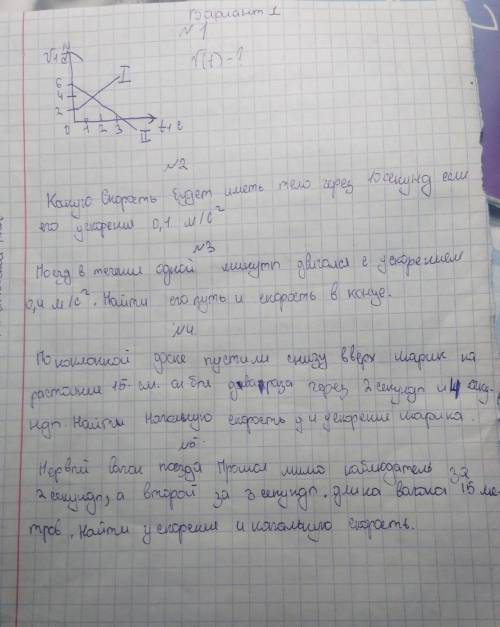 Вариант 1
№1
V(t) - ?
6
4
2
0 1 2 3 t, c
I
II
№2
Какую скорость будет иметь тело через 10 секунд если
его ускорения 0,1 м/с²
№3
Поезд в течении одной минуты двигался с ускорением
0,4 м/с². Найти его путь и скорость в конце.
№4
По наклонной доске пустили снизу вверх шарик на
растоянии 15 см. он был два раза через 2 секунды и 4 секу-
нды. Найти начальную скорость и ускорения шарика.
№5.
Первый вагон поезда прошол мимо наблюдатель за
2 секунды, а второй за 3 секунды. длина вагона 15 ме-
тров. Найти ускорения и начальную скорость.